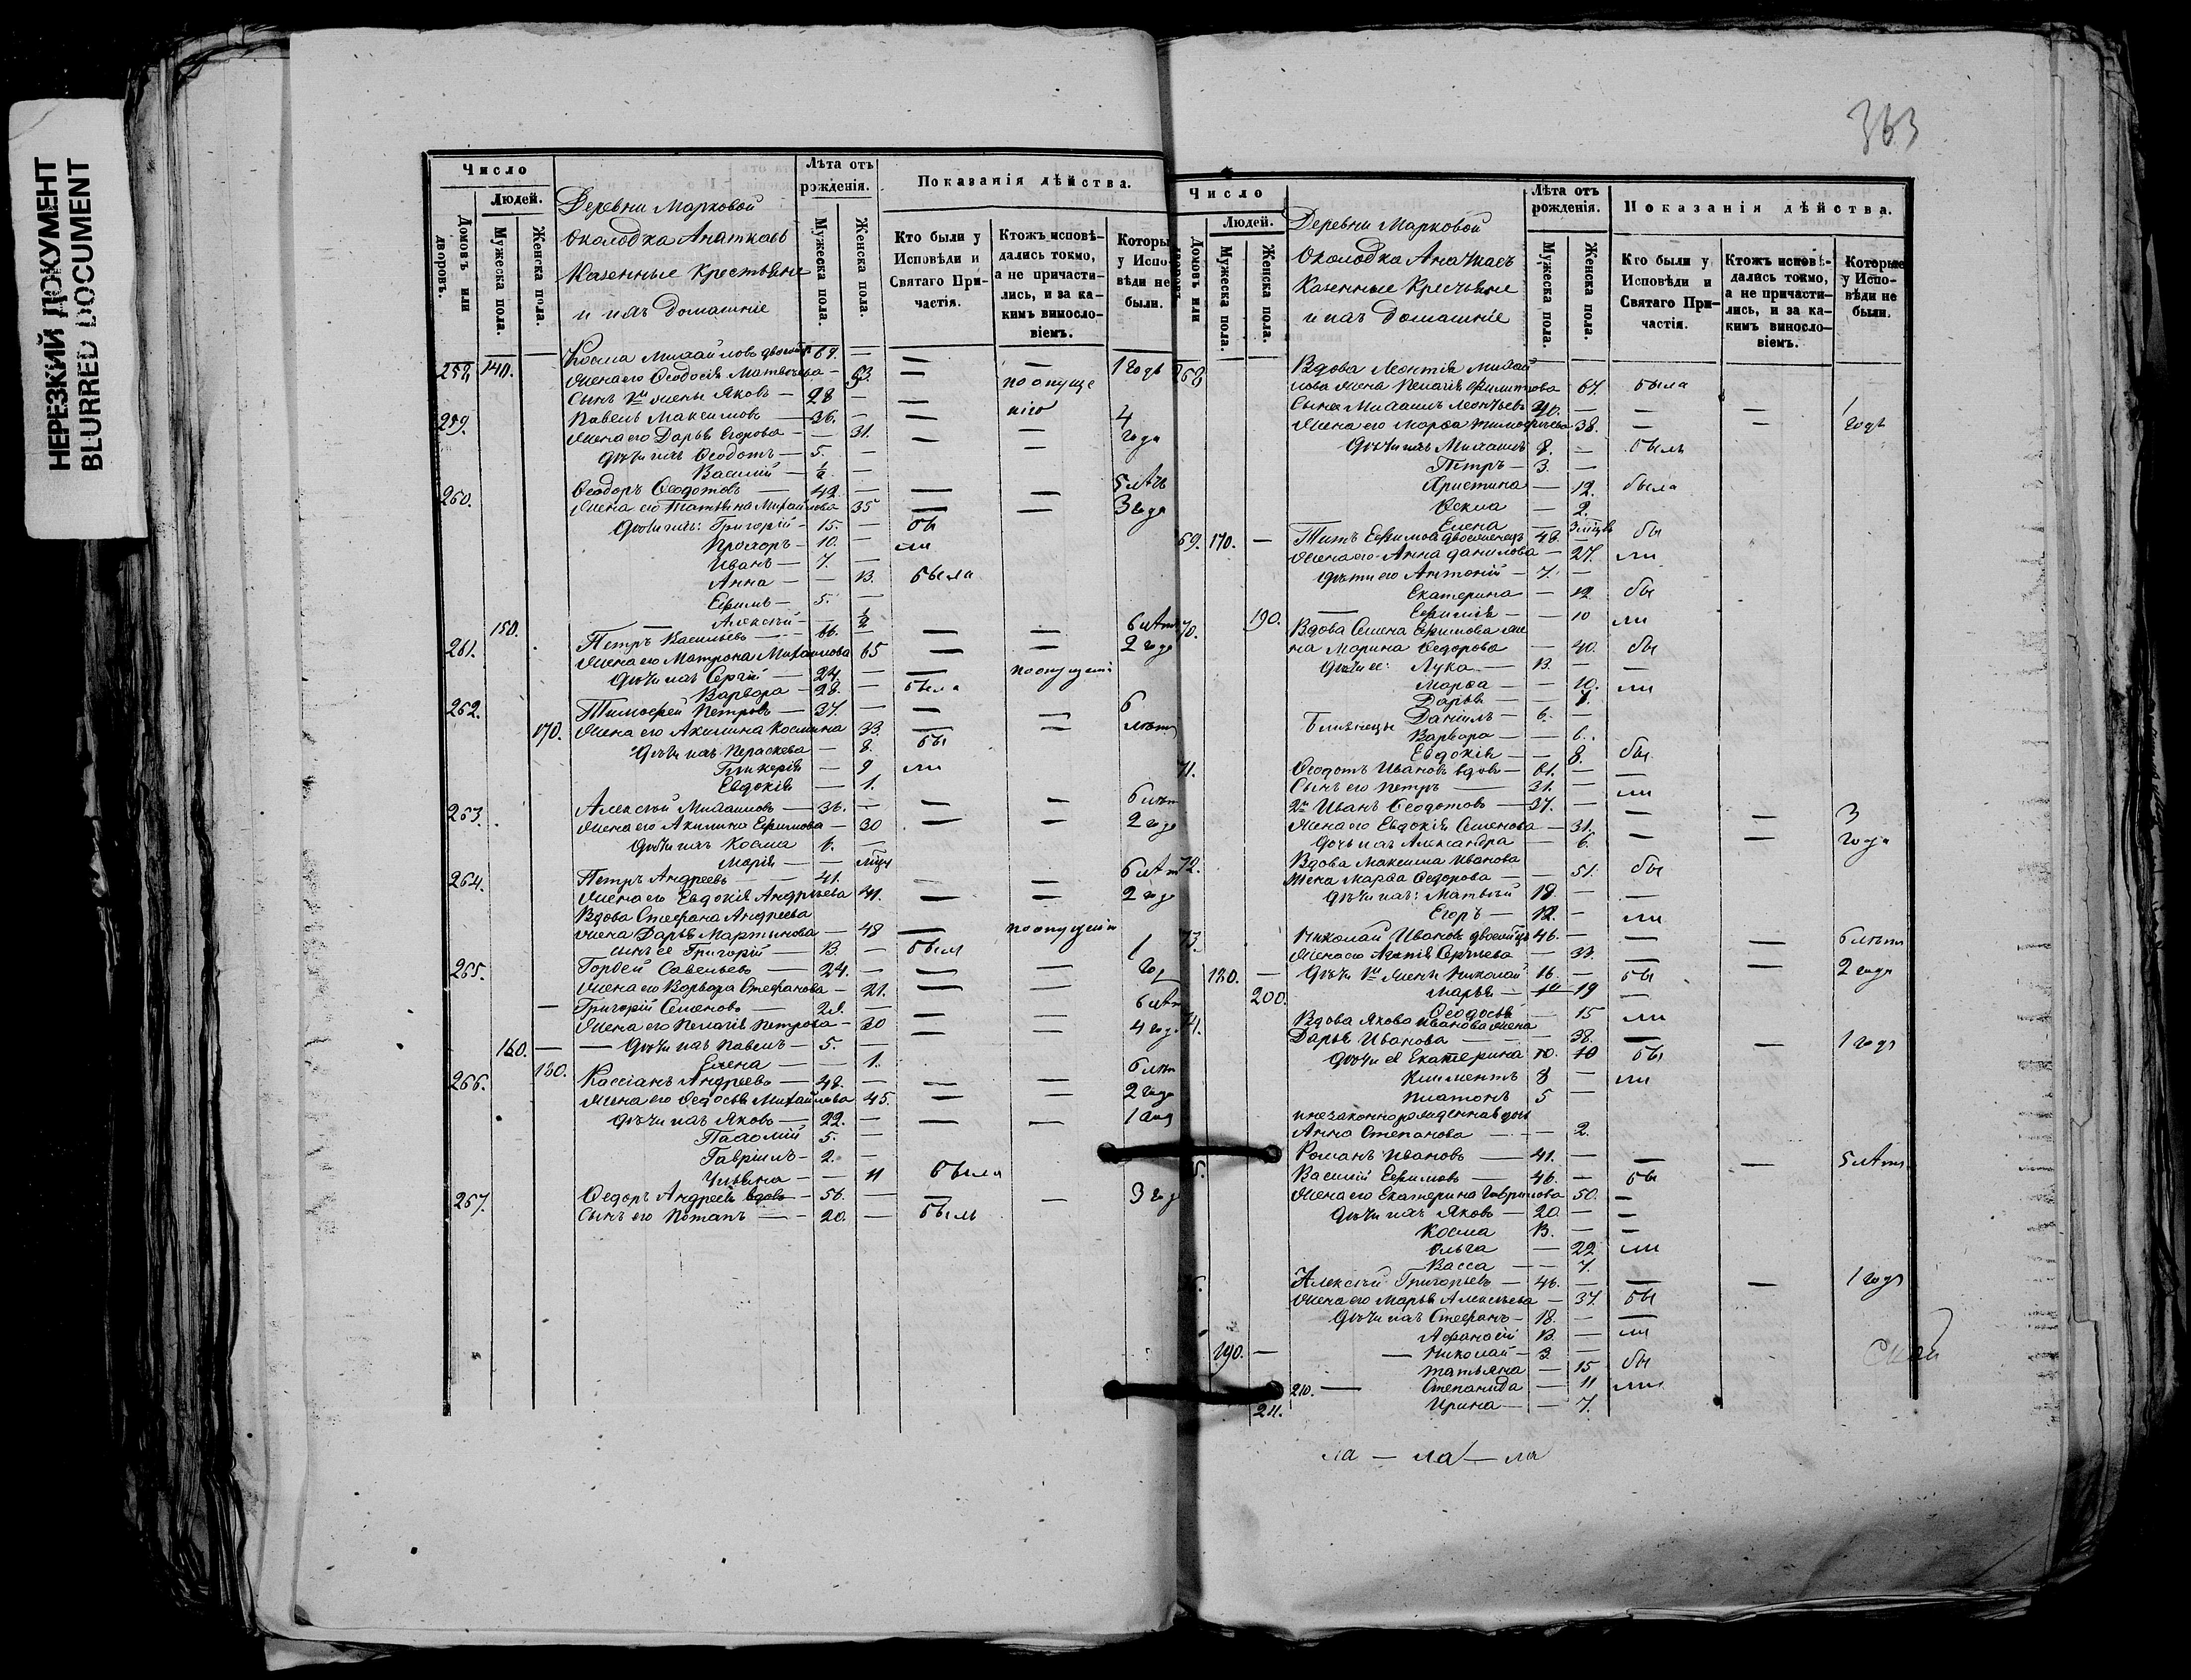 НЕРЕЗКИЙ ДОКУМЕНТ
BLURRED DOCUMENT
Число
Людей.
Домовъ или дворовъ.
Мужеска пола.
Женска пола.
Деревни Марковой
околодка Анаткасъ
Казенные Крестьяне
и ихъ домашніе
Лѣта отъ рожденія.
Мужеска пола.
Женска пола.
Показанія дѣйства.
Кто были у Исповѣди и Святаго Причастія.
Ктожъ исповѣдались токмо, а не причастились, и за какимъ винословіемъ.
Которы у Испо- вѣди не были.
258. 140. — Косма Михайловъ 69. — — — 1 годъ
Жена его Ѳеодосія Матвѣева — 53. —
Сынъ 1й жены Яковъ — 28 — — по опуще
нію
259. Павелъ Максимовъ — 36. — — — 4
Жена его Дарья Егорова — — 31. — — года
дѣти ихъ Ѳеодотъ — 5. —
Василій — 1/2 —
260. Ѳеодоръ Ѳеодотовъ — 42. — — — 5 лѣтъ
Жена его Татьяна Михайлова 35 — — 3 года
дѣти ихъ: Григорій — 15. — бы
Прохоръ — 10. — ли
Иванъ — 7. —
Анна — — 13. была
Ефимъ — 5. —
150. — Алексѣй — — 1/2
261. Петръ Васильевъ — 66. — — — 6 лѣт
Жена его Матрона Михайлова 65 — — 2 года
дѣти ихъ Сергій — 24. — — по опущенію
Варвара — 28. — была
262. Тимофей Петровъ — 37. — — — 6
170. Жена его Акилина Космина 33. — — лѣтъ
дѣти ихъ Параскева — 8. бы
Гликерія — 9 ли
Евдокія — 1.
263. Алексѣй Михаиловъ — 36. — — — 6 лѣт
Жена его Акилина Ефимова — 30 — — 2 года
дѣти ихъ Косма 6. —
Марія — —
264. Петръ Андреевъ — 41. — — 6 лѣт
Жена его Евдокія Андрѣева 41. — — 2 года
Вдова Стефана Андреева
жена Дарья Мартынова — 48 — по опущенію
сынъ ее Григорій — 13. — былъ
265. Гордей Савельевъ — 24. — — — 1
Жена его Варвара Стефанова — 21. — — год
— Григорій Семеновъ — — — — 6 лѣт
Жена его Пелагія Петрова — 30 — — 4 года
160. — — дѣти ихъ Павелъ — 5. —
180. Елена — — 1.
266. Кассіанъ Андреевъ — 48. — — — 6 лѣт
Жена его Ѳедосья Михайлова 45. — — 2 года
дѣти ихъ Яковъ — 22. — — — 1 год
Пахомій 5. —
Гавріилъ — 2. —
— — 11 была
267. Ѳедоръ Андреевъ вдовъ — 56. — — — 3 год
Сынъ его Потапъ — 20. — былъ
363
Число
Людей.
Домовъ или
Мужеска пола.
Женска пола.
Деревни Марковой
Околодка Анаткасъ
Казенные Крестьяне
и ихъ Домашніе
Лѣта отъ рожденія.
Мужеска пола.
Женска пола.
Показанія дѣйства.
Кто были у Исповѣди и Святаго Причастія.
Ктожъ исповѣдались токмо, а не причастились, и за какимъ винословіемъ.
Которые у Исповѣди не были.
268 Вдова Леонтія Михай
лова жена Пелагія Филиппова 67. была
Сынъ Михаилъ Леонтьевъ 40. — — — 1
Жена его Марѳа Тимоѳѣева 38. — — годъ
дѣти ихъ Михаилъ 8. — былъ
Петръ — 3. —
Христина — 12. была
Ѳекла — 2.
Елена — 3 мѣцъ
69. 170. — Титъ Ефимовъ двоеженецъ 48. бы
Жена его Анна Данилова — 27. ли
дѣти его Антоній — 7. —
Екатерина — 12 бы
190. — Ефимія — — 10 ли
70. Вдова Семена Ефимова же
на Марина Ѳедорова — 40. бы
дѣти ее: Лука — 13. — —
Марѳа — — 10. ли
Дарья — —
Близнецы Даніилъ — 6. —
Варвара — — 6.
Евдокія — — 8. бы
71. Ѳеодотъ Ивановъ вдовъ — 61. — —
Сынъ его Петръ — 31. — ли
2й Иванъ Ѳеодотовъ — 37. — — — 3
Жена его Евдокія Семенова — 31. — — года
дочь ихъ Александра — 6.
72. Вдова Максима Иванова
жена Марѳа Ѳедорова — — 51. бы
дѣти ихъ: Матвѣй 18. — —
Егоръ — 12. — ли
73. Николай Ивановъ 46. — — — 6 лѣтъ
Жена его Агаѳія Сергѣева — 33. — — 2 года
180. — дѣти 1й жены Николай 16. — бы
200. Марья — 19 —
Ѳеодосья — 15 ли
74. Вдова Якова Иванова жена
Дарья Иванова — — 38. — — 1 годъ
дѣти ея Екатерина 10. 10 бы
Климентъ 8 — ли
Платонъ 5 —
и незаконнорожденная дочь
Анна Степанова — — 2.
Романъ Ивановъ — 41. — — — 5 лѣтъ
5. Василій Ефимовъ — 46. — бы
Жена его Екатерина Гаврилова 50. —
дѣти ихъ Яковъ — 20. — —
Косма 13. — —
Ольга — 22 ли
Васса — — 7.
Алексѣй Григорьевъ — 46. — — — 1 годъ
Жена его Марья Алексѣева — 37. бы
дѣти ихъ Стефанъ — 18. — —
Аѳанасій 13. — ли
190. — — Николай — 3 —
Татьяна — 15 бы
210. — Степанида — 11 ли
211. Ирина — — 7.
ла — ла — ла